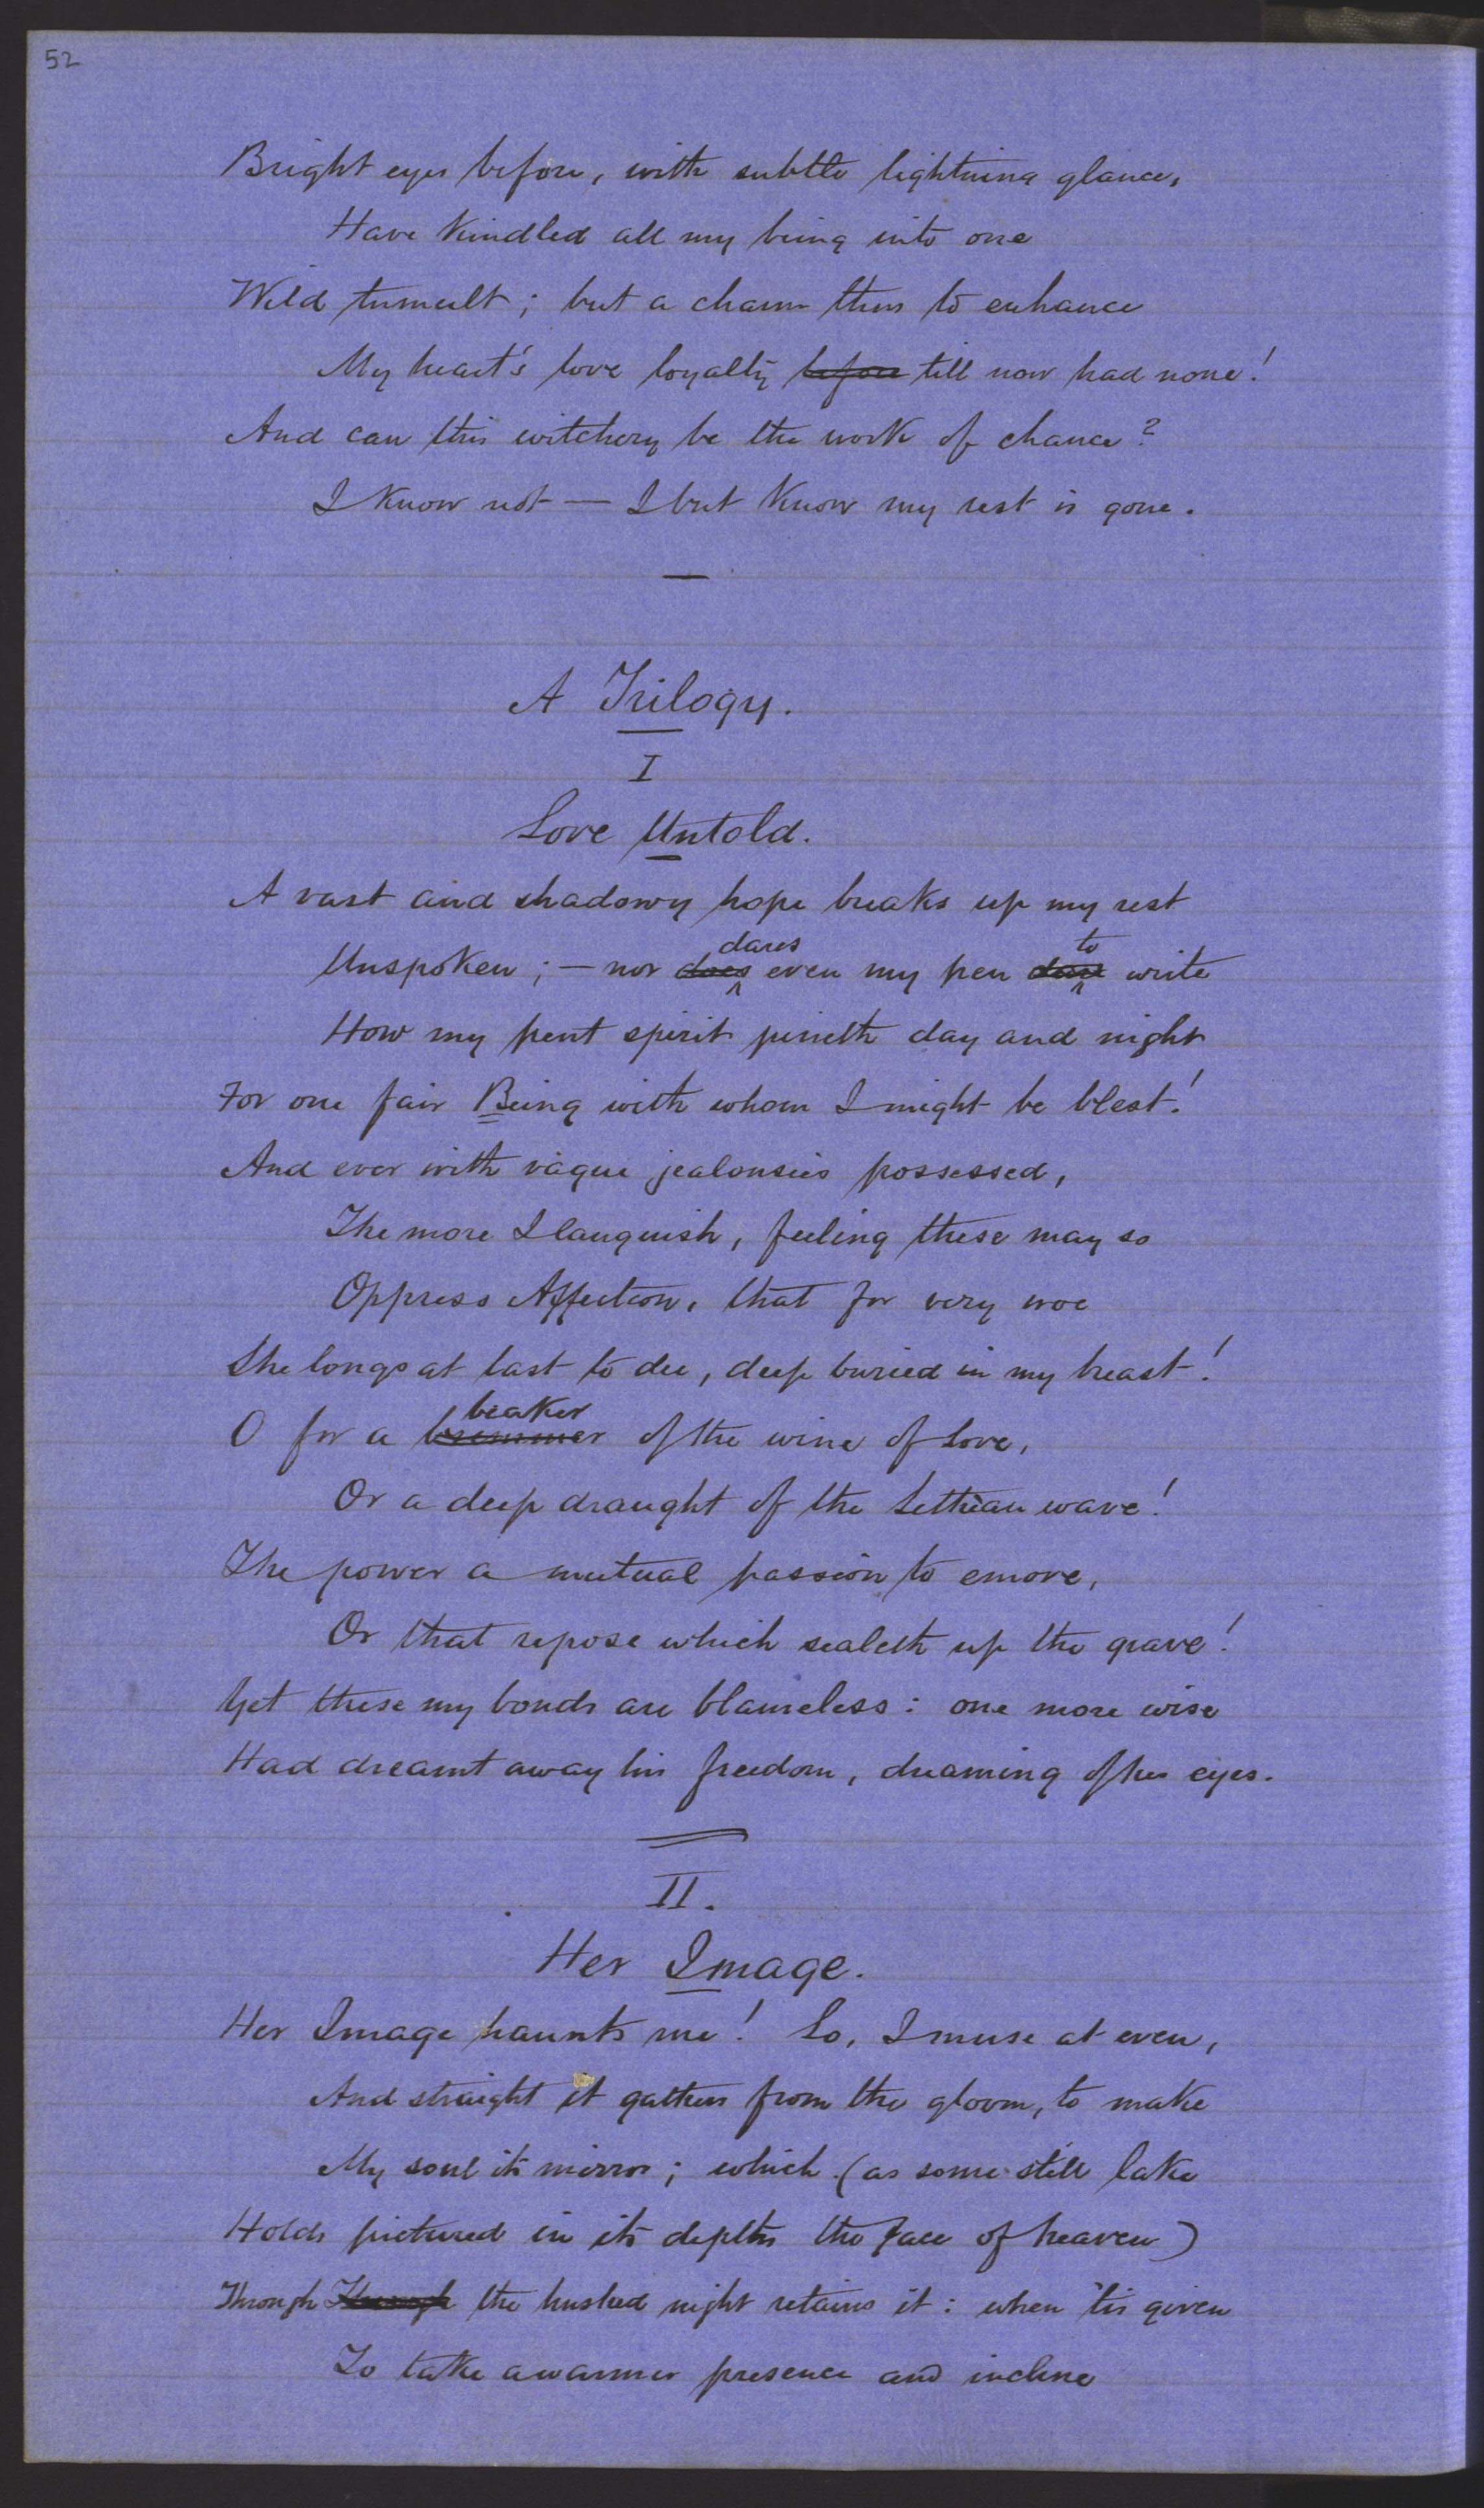 52
Bright eyes before, with subtle lightning glance,
Have kindled all my being into one
Wild tumult; but a charm thus to enhance
My heart's love loyalty before till now had none!
And can this witchery be the work of chance?
I know not — I but know my rest is gone.
A Trilogy.
I
Love Untold.
A vast and shadowy hope breaks up my rest
dares to
Unspoken; — nor does even my pen dare write
How my pent spirit pineth day and night
For one fair Being with whom I might be blest!
And ever with vague jealousies possessed,
The more I languish, feeling these may so
Oppress Affection, that for very woe
She longs at last to die, deep buried in my breast!
beaker
O for a brimmer of the wine of Love,
Or a deep draught of the Lethean wave!
The power a mutual passion to emove,
Or that repose which sealeth up the grave!
Yet these my bonds are blameless: one more wise
Had dreamt away his freedom, dreaming of her eyes.
II.
Her Image.
Her Image haunts me! Lo, I muse at even,
And straight it gathers from the gloom, to make
My soul its mirror; which (as some still lake
Holds pictured in its depths the face of heaven)
Through Through the hushed night retains it: when 'tis given
To take a warmer presence and incline